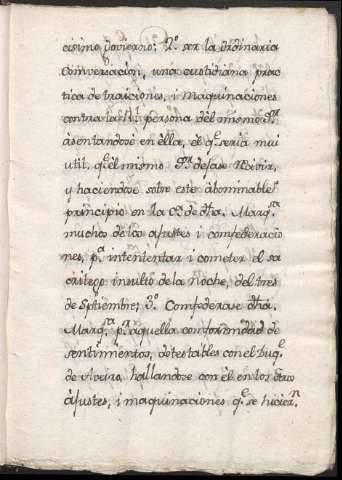 cisimo Govierno: 2.º ser la ordinaria
Conversacion, una custidiana prac
tica de traiciones, i maquinaciones
contra la Rl. persona del mismo Sr.
asentandose en ella, el q.e seria mui
util, q.e el mismo Sor. dejase de vivir,
y haciendose sobre este abominable
principio en la C.a de dha. Marq.sa
muchos de los ajustes i comfederacio
nes, p.a intenientar i cometer el sa
crilego insulto de la noche, del tres
de Septiembre; 3.º Comfederase dha.
Marq.sa p.r aquella conformidad de
sentimientos, detestables con el Duq.e
de Aveiro, hallandose con èl en los otros
àjustes, i maquinaciones q.e se hicier.n